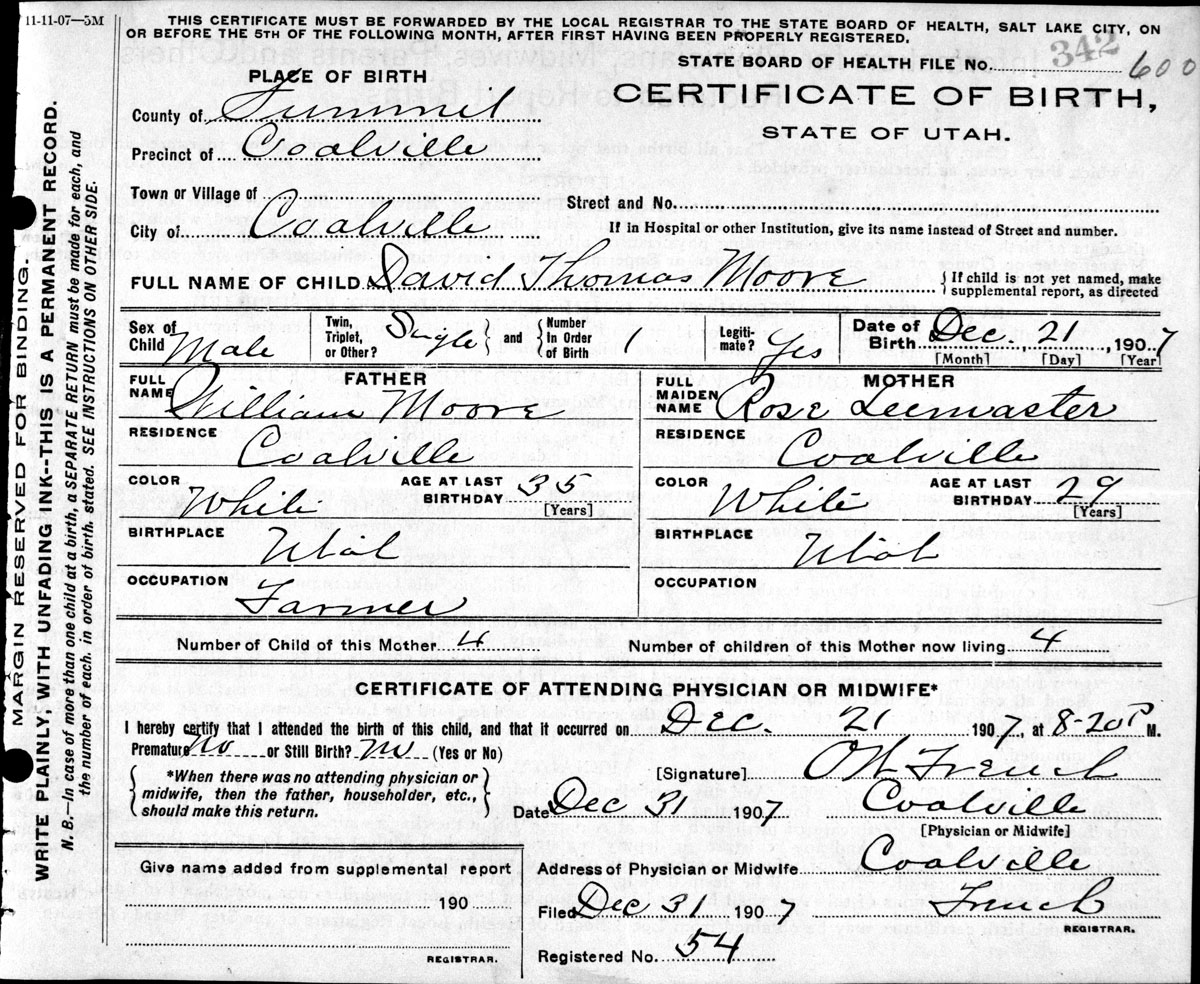 11-11-07—5M
THIS CERTIFICATE MUST BE FORWARDED BY THE LOCAL REGISTRAR TO THE STATE BOARD OF HEALTH, SALT LAKE CITY, ON
OR BEFORE THE 5TH OF THE FOLLOWING MONTH, AFTER FIRST HAVING BEEN PROPERLY REGISTERED.
342
STATE BOARD OF HEALTH FILE No. 600
PLACE OF BIRTH
CERTIFICATE OF BIRTH,
STATE OF UTAH.
County of Summit
Precinct of Coalville
Town or Village of
Street and No.
City of Coalville
If in Hospital or other Institution, give its name instead of Street and number.
FULL NAME OF CHILD David Thomas Moore { If child is not yet named, make
supplemental report, as directed
Sex of Child Male
Twin, Triplet, or Other? Single } and { Number In Order of Birth 1
Legiti- mate? Yes
Date of Birth Dec. 21, 1907
[Month] [Day] [Year]
FATHER
FULL NAME William Moore
RESIDENCE
Coalville
COLOR White AGE AT LAST BIRTHDAY 35
[Years]
BIRTHPLACE Utah
OCCUPATION Farmer
MOTHER
FULL MAIDEN NAME Rose Leemaster
RESIDENCE
Coalville
COLOR White AGE AT LAST BIRTHDAY 29
[Years]
BIRTHPLACE Utah
OCCUPATION
Number of Child of this Mother 4 Number of children of this Mother now living 4
CERTIFICATE OF ATTENDING PHYSICIAN OR MIDWIFE*
I hereby certify that I attended the birth of this child, and that it occurred on Dec. 21 1907, at 8-20 P M.
Premature No or Still Birth? No (Yes or No)
{ *When there was no attending physician or
midwife, then the father, householder, etc.,
should make this return. }
[Signature] French
Date Dec 31 1907 Coalville
[Physician or Midwife]
Give name added from supplemental report
190
REGISTRAR.
Address of Physician or Midwife Coalville
Filed Dec 31 1907 French
REGISTRAR.
Registered No. 54
MARGIN RESERVED FOR BINDING.
WRITE PLAINLY, WITH UNFADING INK--THIS IS A PERMANENT RECORD.
N. B.—In case of more than one child at a birth, a SEPARATE RETURN must be made for each, and
the number of each. in order of birth. stated. SEE INSTRUCTIONS ON OTHER SIDE.